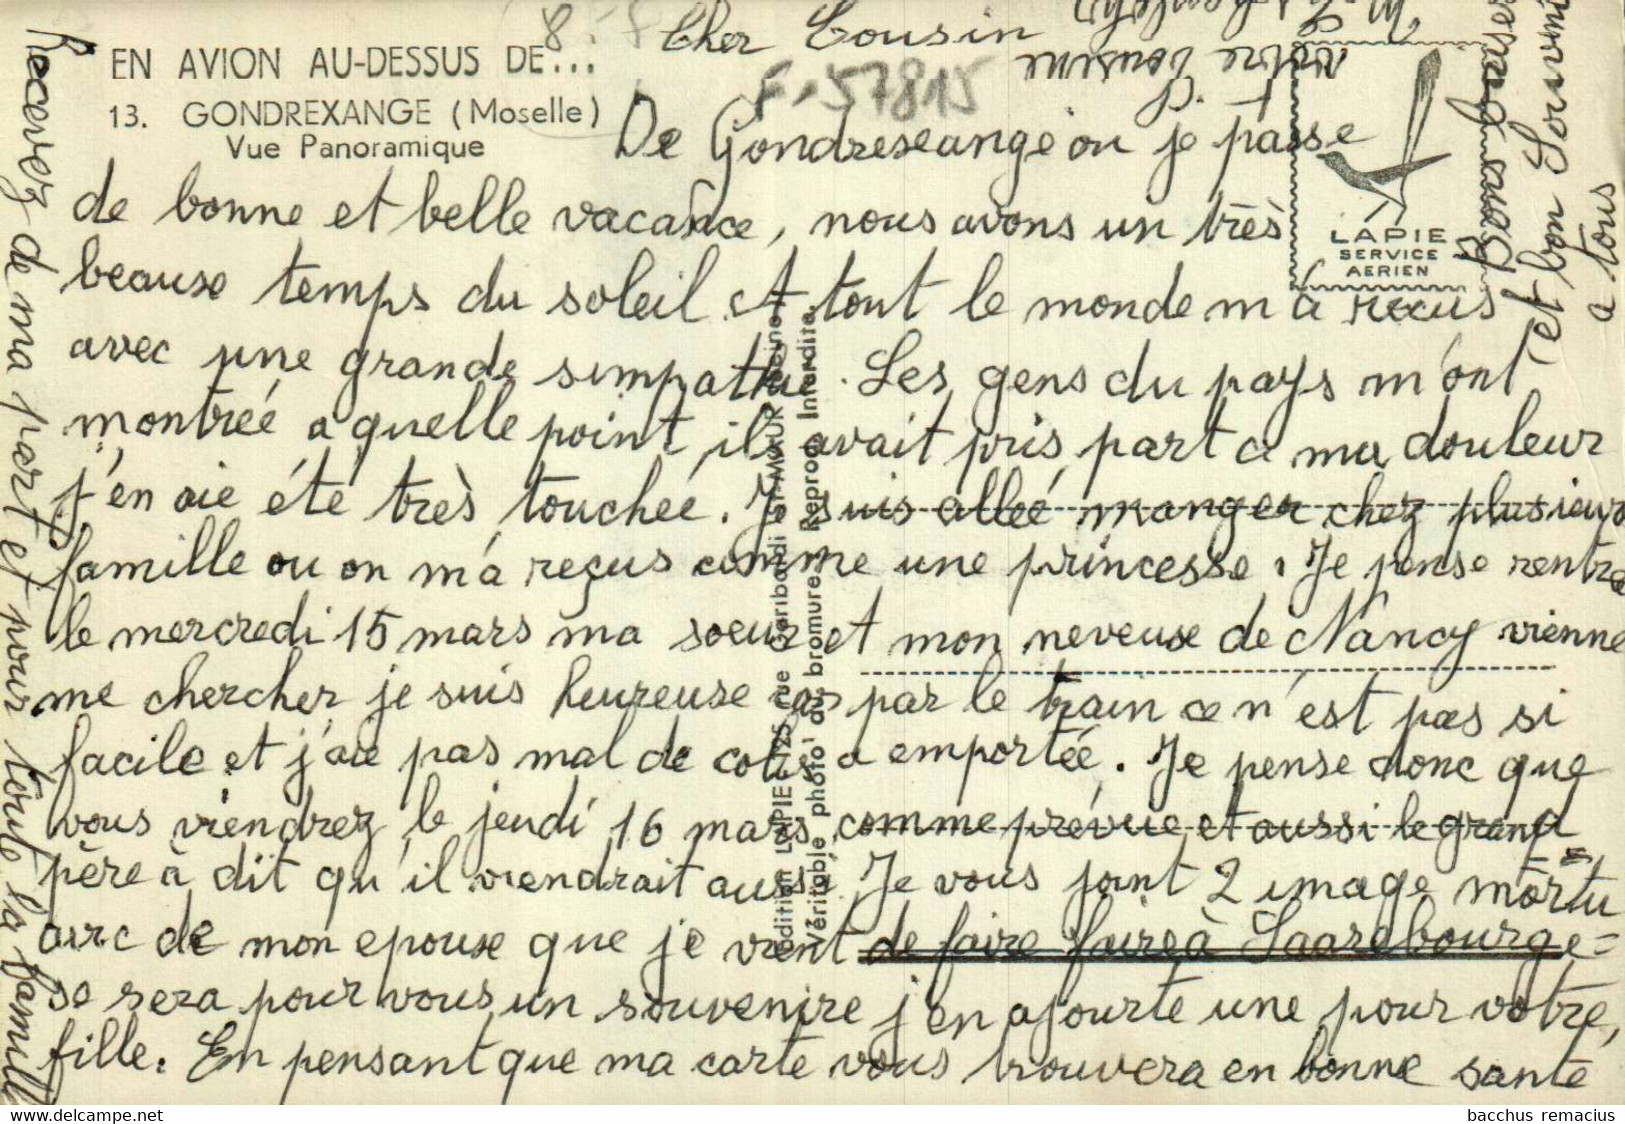 EN AVION AU-DESSUS DE...
13. GONDREXANGE (Moselle)
Vue Panoramique
F. 57815
LAPIE
SERVICE
AERIEN
Edition LAPIE
Véritable photo au bromure. Reprod. Interdite
Cher Cousin
De Gondreseange ou je passe
de bonne et belle vacance, nous avons un très
beause temps du soleil et tout le monde m'a recus
avec une grande simpathie. Les gens du pays m'ont
montréé a quelle point il avait pris part a ma douleur
j'en aie été très touchéé. Je suis alléé manger chez plusieurs
famille ou on m'a reçus comme une princesse. Je pense rentre
le mercredi 15 mars ma soeur et mon neveuse de Nancy vienne
me chercher je suis heureuse car par le train ce n'est pas si
facile et j'aie pas mal de colis a emportéé. Je pense donc que
vous viendrez le jeudi 16 mars comme prévue et aussi le grand
père à dit qu'il viendrait aussi Je vous joint 2 image mortu
airc de mon epouse que je vient de faire faire à Saarebourg e=
se sera pour vous un souvenire j'en ajourte une pour votre,
fille. En pensant que ma carte vous trouvera en bonne santé
Recevez de ma part et pour toute la famille
Bons Baiser
et bon Souvenir
a tous
votre cousine